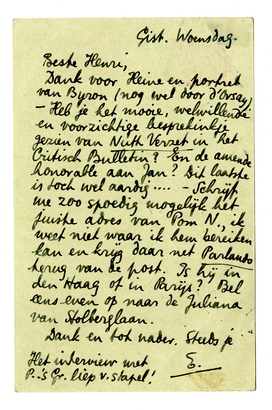 Gist. Woensdag.
Beste Henri,
Dank voor Heine en portret
van Byron (nog wel door d'Orsay)
– Heb je het mooie, welwillende
en voorzichtige besprekinkje
gezien van Nutt Verzet in het
Critisch Bulletin? En de amende
honorable aan Jan? Dit laatste
is toch wel aardig .... – Schrijf
me zoo spoedig mogelijk het
juiste adres van Pom N., ik
weet niet waar ik hem bereiken
kan en krijg daar net Parlando
terug van de post. Is hij in
den Haag of in Parijs? Bel
eens even op naar de Juliana
van Stolberglaan.
Dank en tot nader. Steeds je
E.
Het interview met
P.-'s Gr. liep v. stapel!